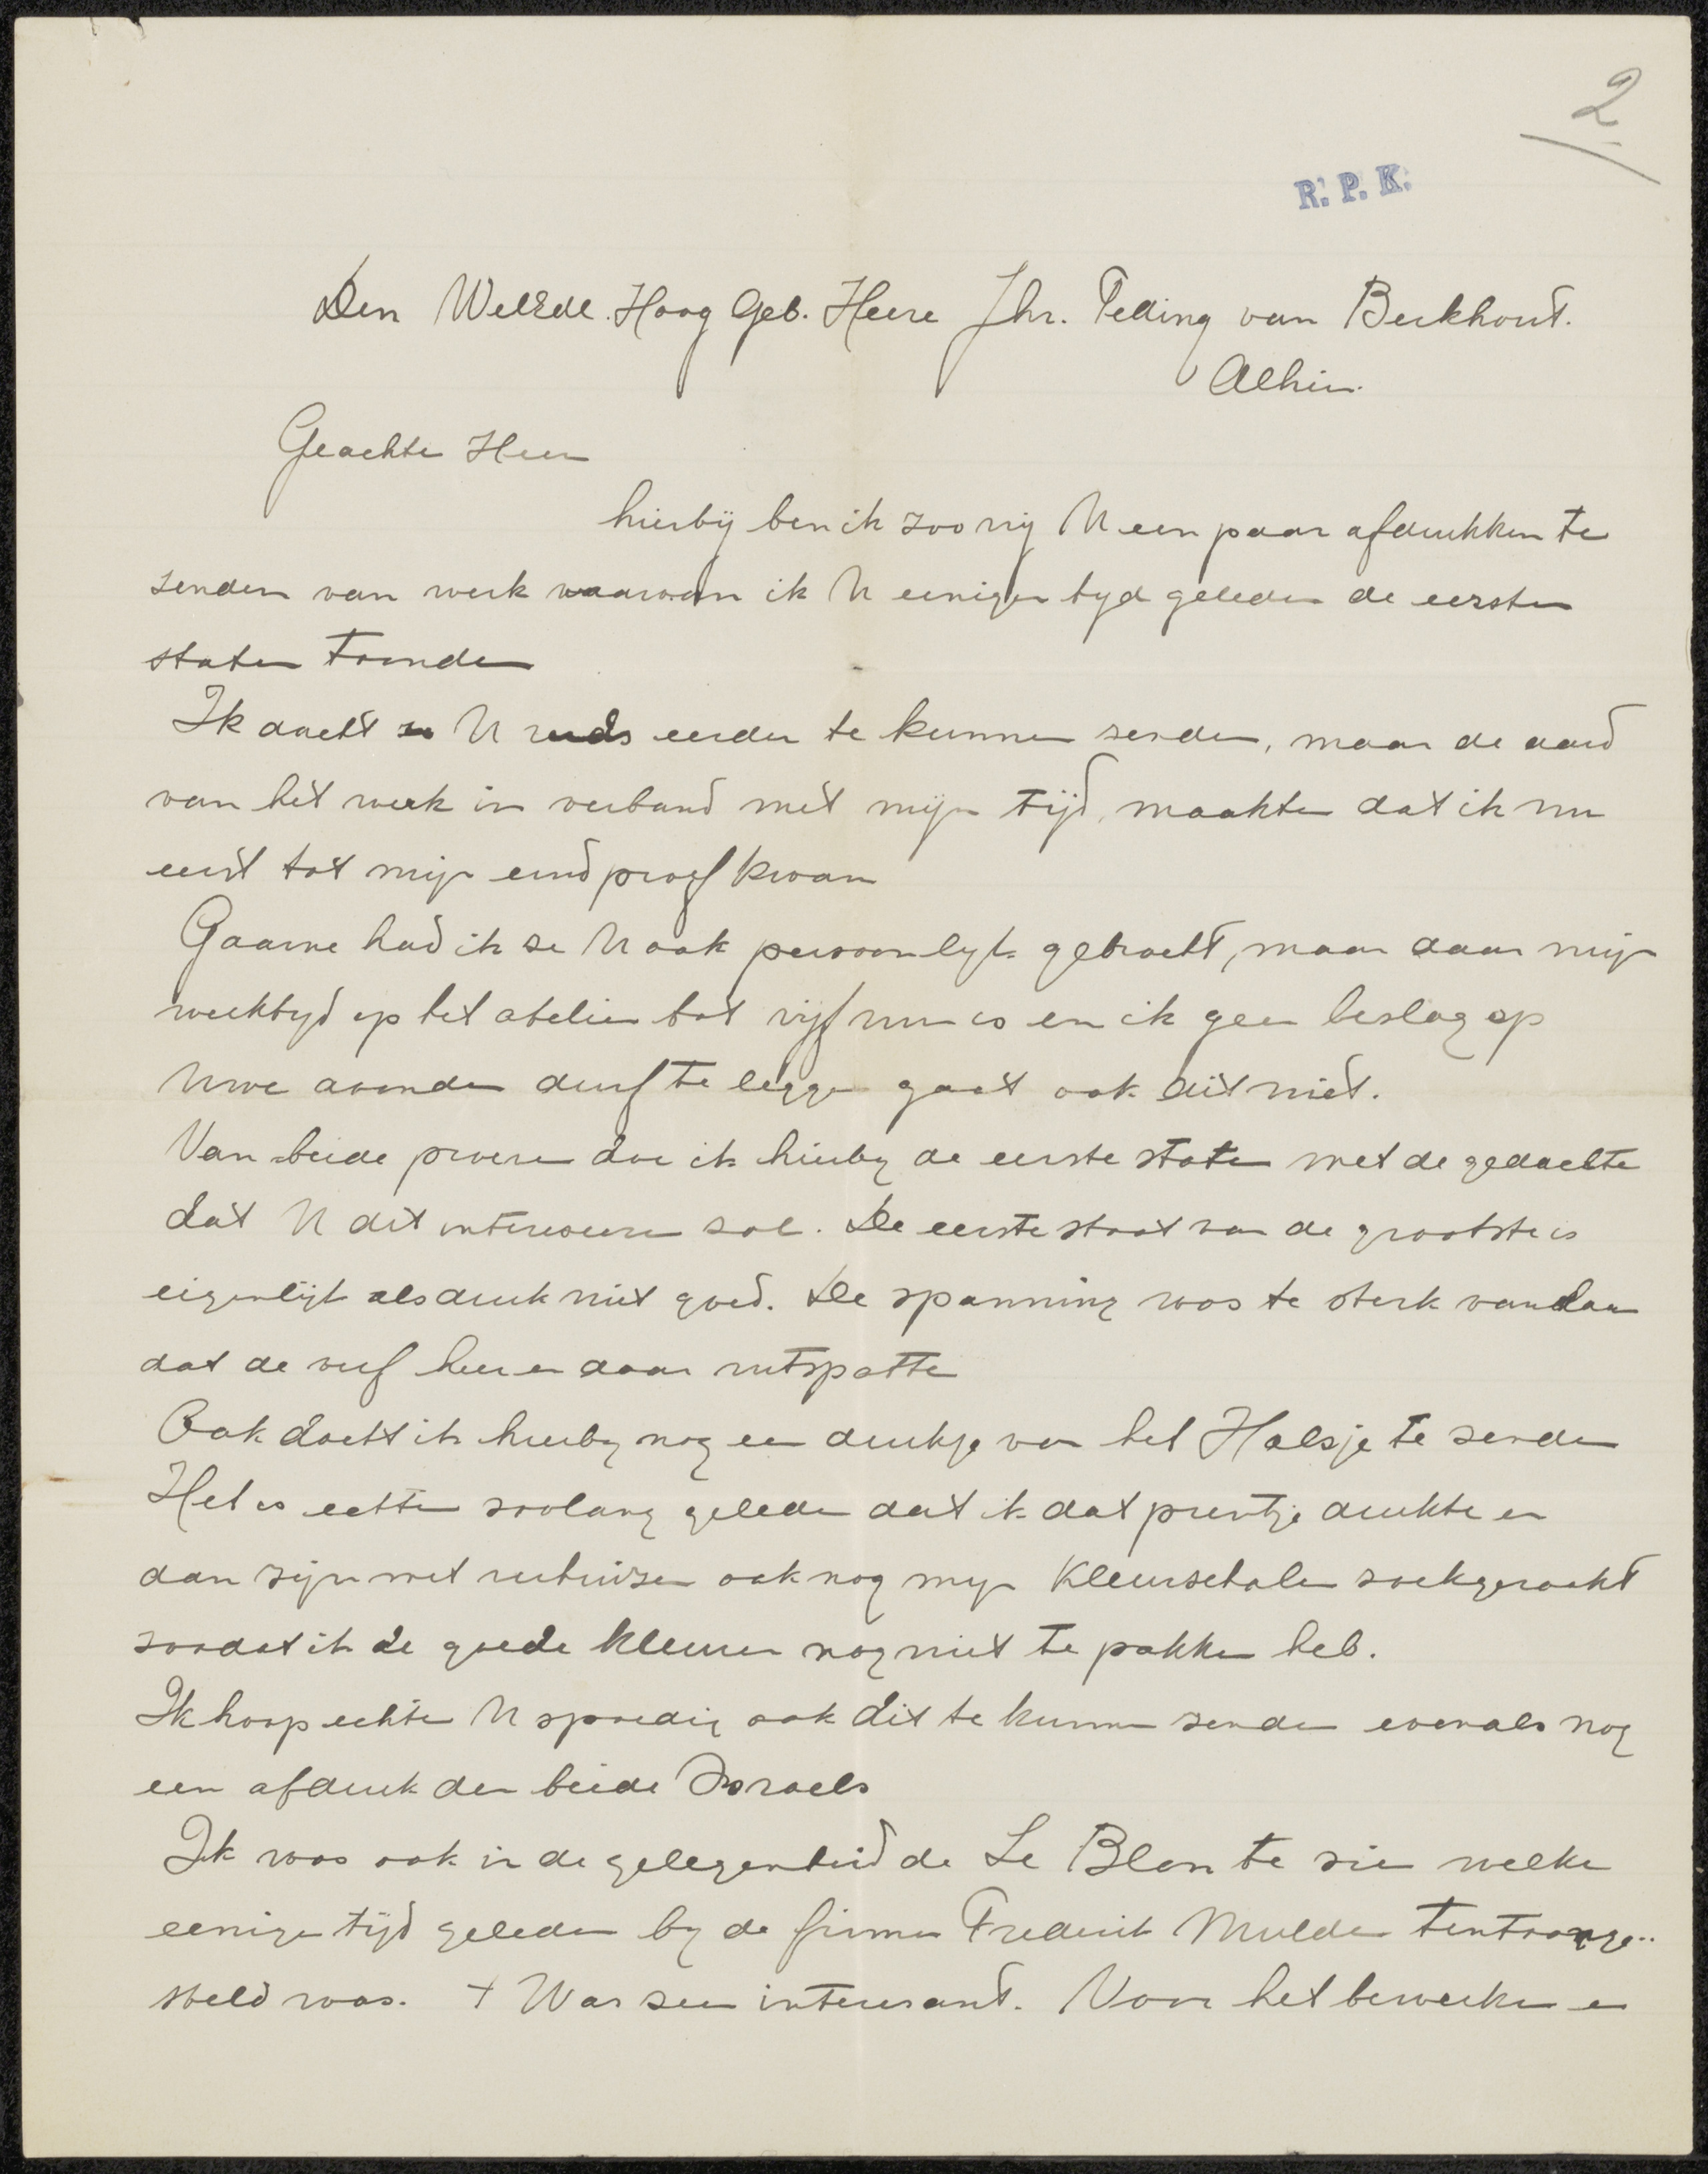 2
R. P. K.
Den WelEdl. Hoog Geb. Heere Jhr. Teding van Berkhout.
Alhier.
Geachte Heer
hierbij ben ik zoo vrij U een paar afdrukken te
zenden van werk waarvan ik U eenigen tyd geleden de eersten
staten toonden
Ik dacht ze U reeds eerder te kunnen zenden, maar de aard
van het werk in verband met mijn tijd, maakten dat ik nu
eerst tot mijn eindproef kwam
Gaarne had ik ze U ook persoonlyk gebracht, maar daar mijn
werktyd op het atelier tot vijf uur is en ik geen beslag op
Uwe avonden durf te leggen gaat ook dit niet.
Van beide proeven doe ik hierby de eerste staten met de gedachte
dat U dit interesseren zal. De eerste staat van de grootste is
eigenlijk als druk niet goed. De spanning was te sterk vandaar
dat de verf hier en daar uitspatte
Ook dacht ik hierby nog een drukje van het Halsje te zenden
Het is echter zoolang geleden dat ik dat prentje drukte en
dan zijn met verhuizen ook nog myn kleurschalen zoekgeraakt
zoodat ik de goede kleuren nog niet te pakken heb.
Ik hoop echter U spoedig ook dit te kunnen zenden evenals nog
een afdruk der beide Israels
Ik was ook in de gelegenheid de Le Blon te zien welke
eenige tijd geleden by de firma Frederik Muller tentoonge..
steld was. 't Was zeer interesant. Voor het bewerken en